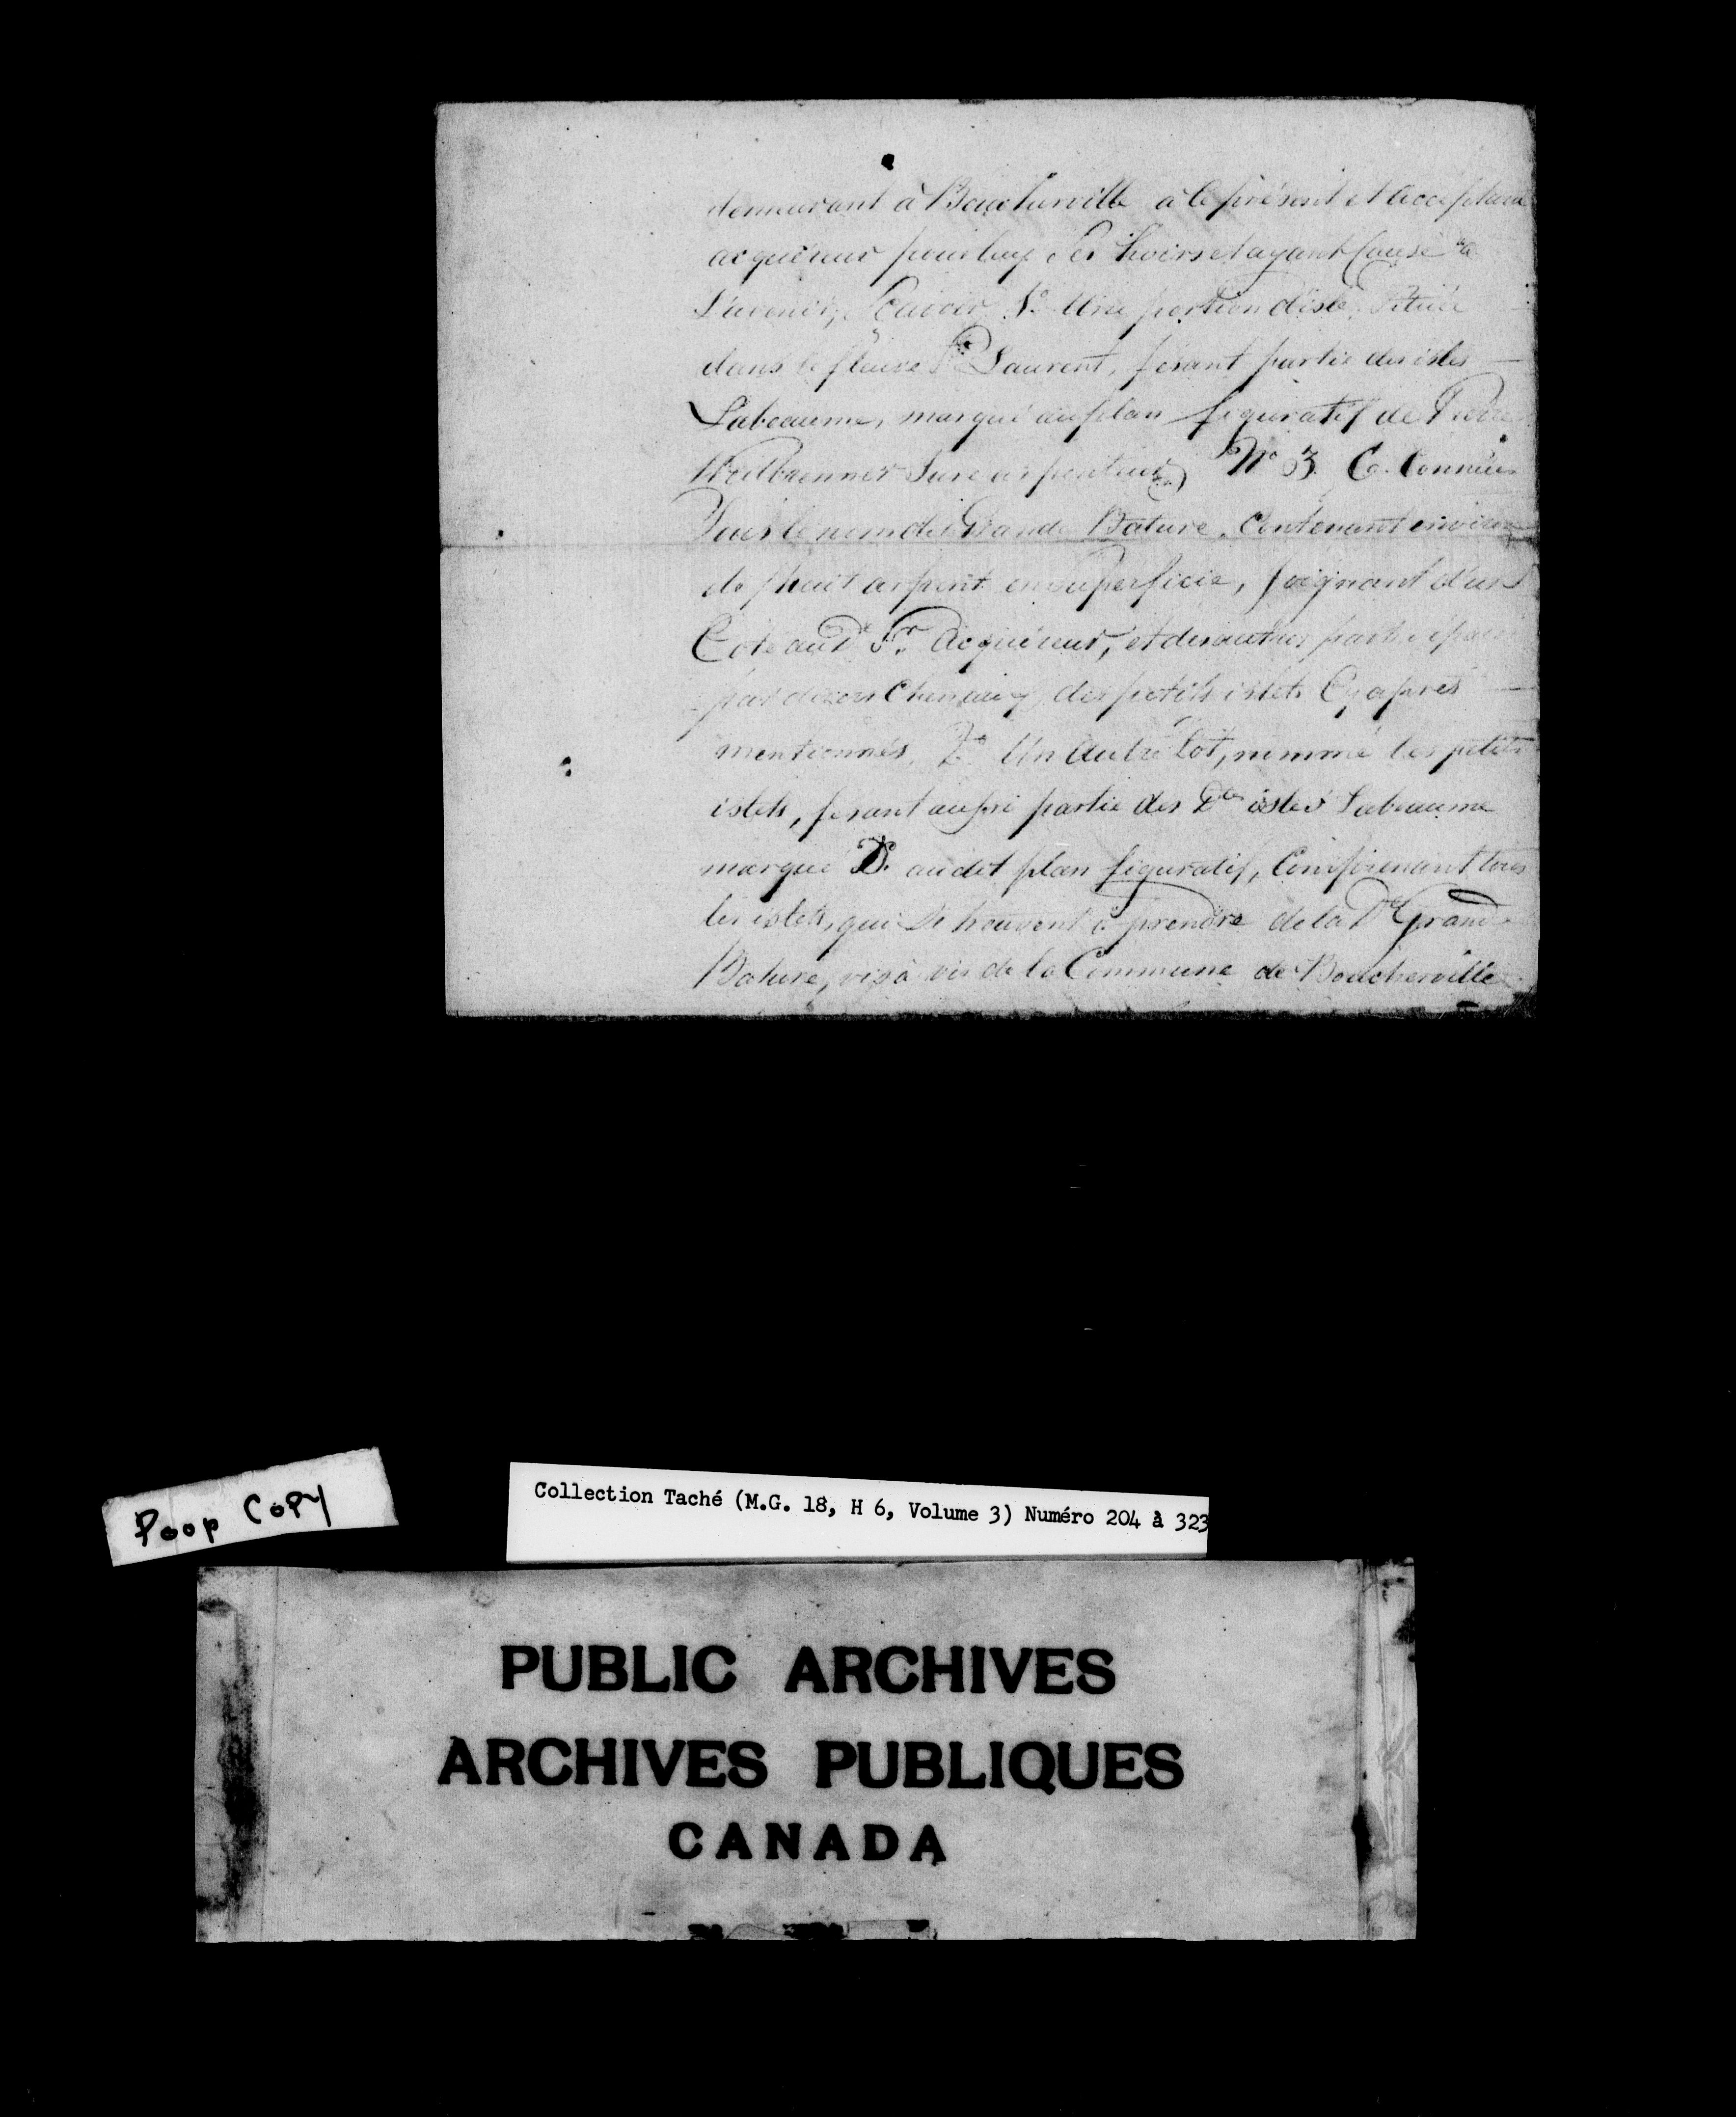 demeurant à Boucherville à ce présent et acceptant
acquéreur pour luy Ses hoirs et ayant Cause à
L'avenir, Scavoir, 1.° Une portion d'isle, Située
dans le fleuve St Laurent, fesant partie des isles
Labeaume, marqué au plan figuratif de Pierre
Weilbrenner Juré arpenteur N° 3. C. Connüe
Sous le nom de Grande Bature. Contenant environ
de huit arpent en superficie, joignant d'un
Coté aud.t S.r Acquéreur, et des autres
par divers Chenaux des petits islets Cy après
mentionnés, 2.° Un Autre Lot, nommé les petits
islets, fesant aussi partie des Dtes isles Labeaume
marqué D. audit plan figuratif, Comprenant tous
les islets, qui Se trouvent à prendre de la Dte Grande
Bature, vis à vis de la Commune de Boucherville
Poop Copy
Collection Taché (M.G. 18, H 6, Volume 3) Numéro 204 à 323
PUBLIC ARCHIVES
ARCHIVES PUBLIQUES
CANADA